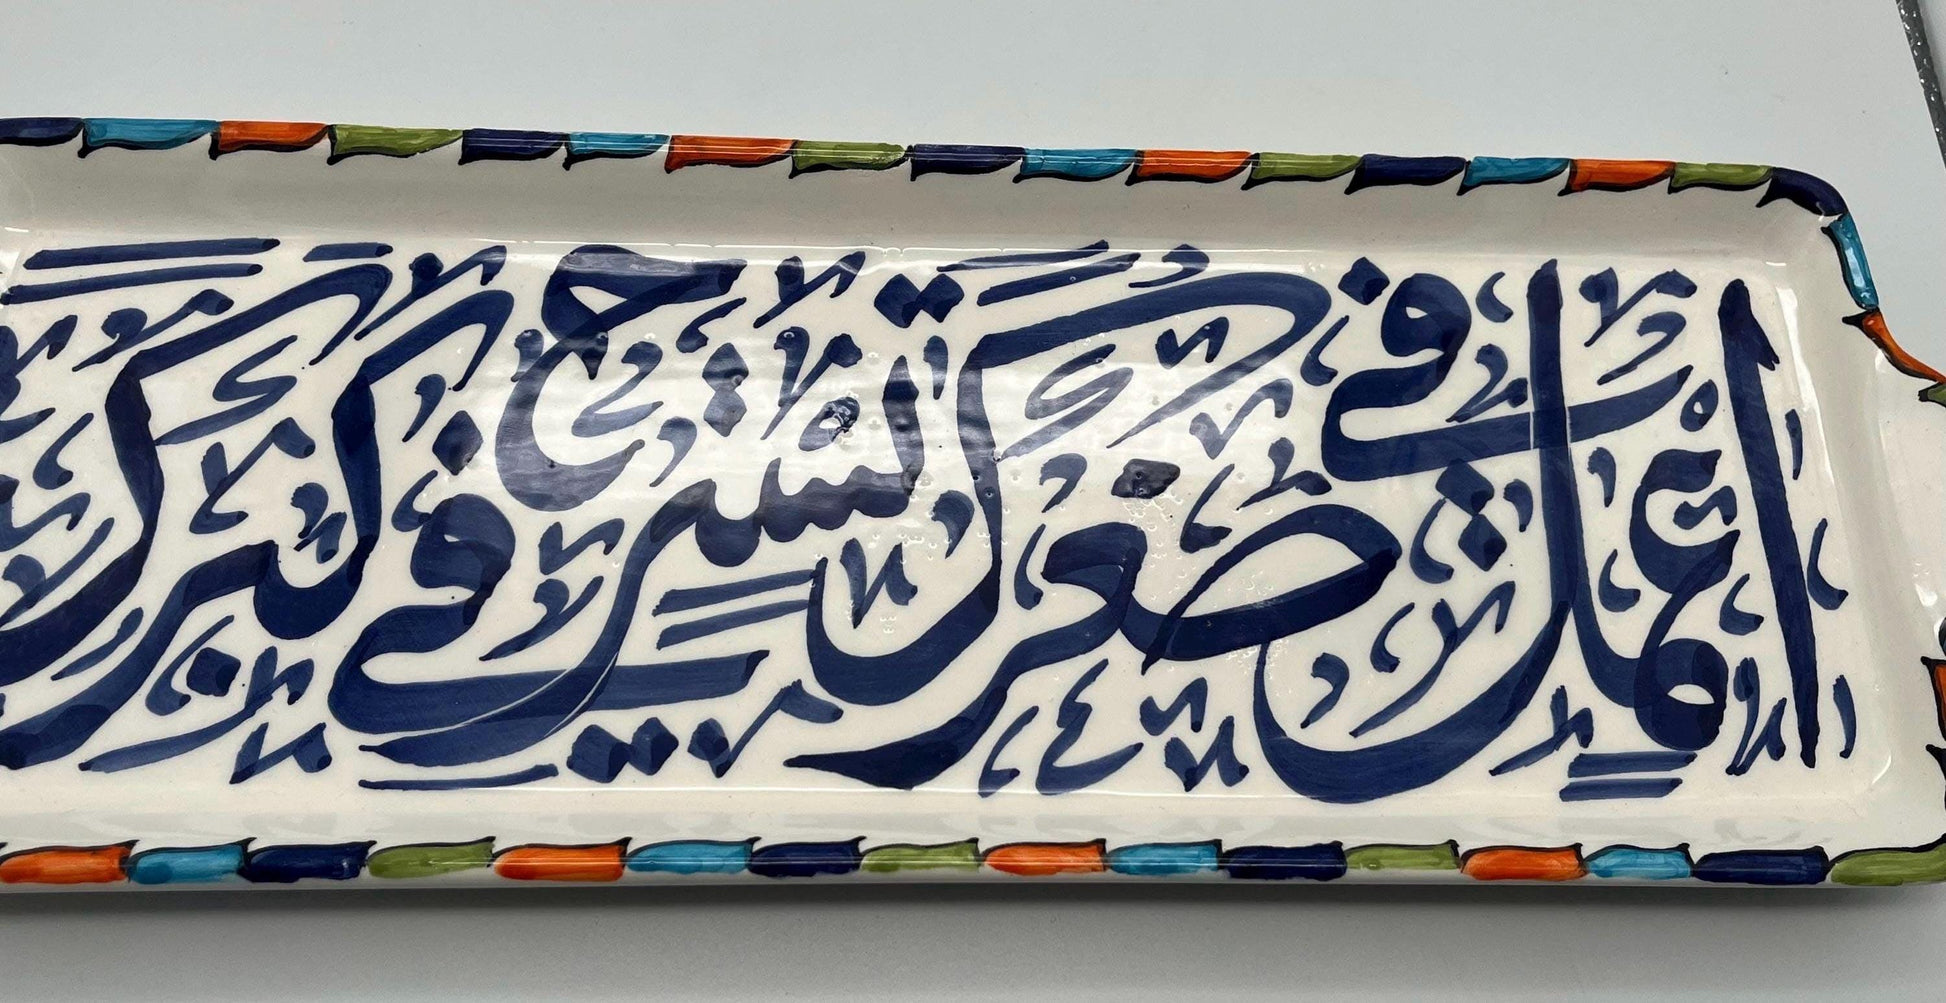 اعمل في صغرك تستريح في كبرك